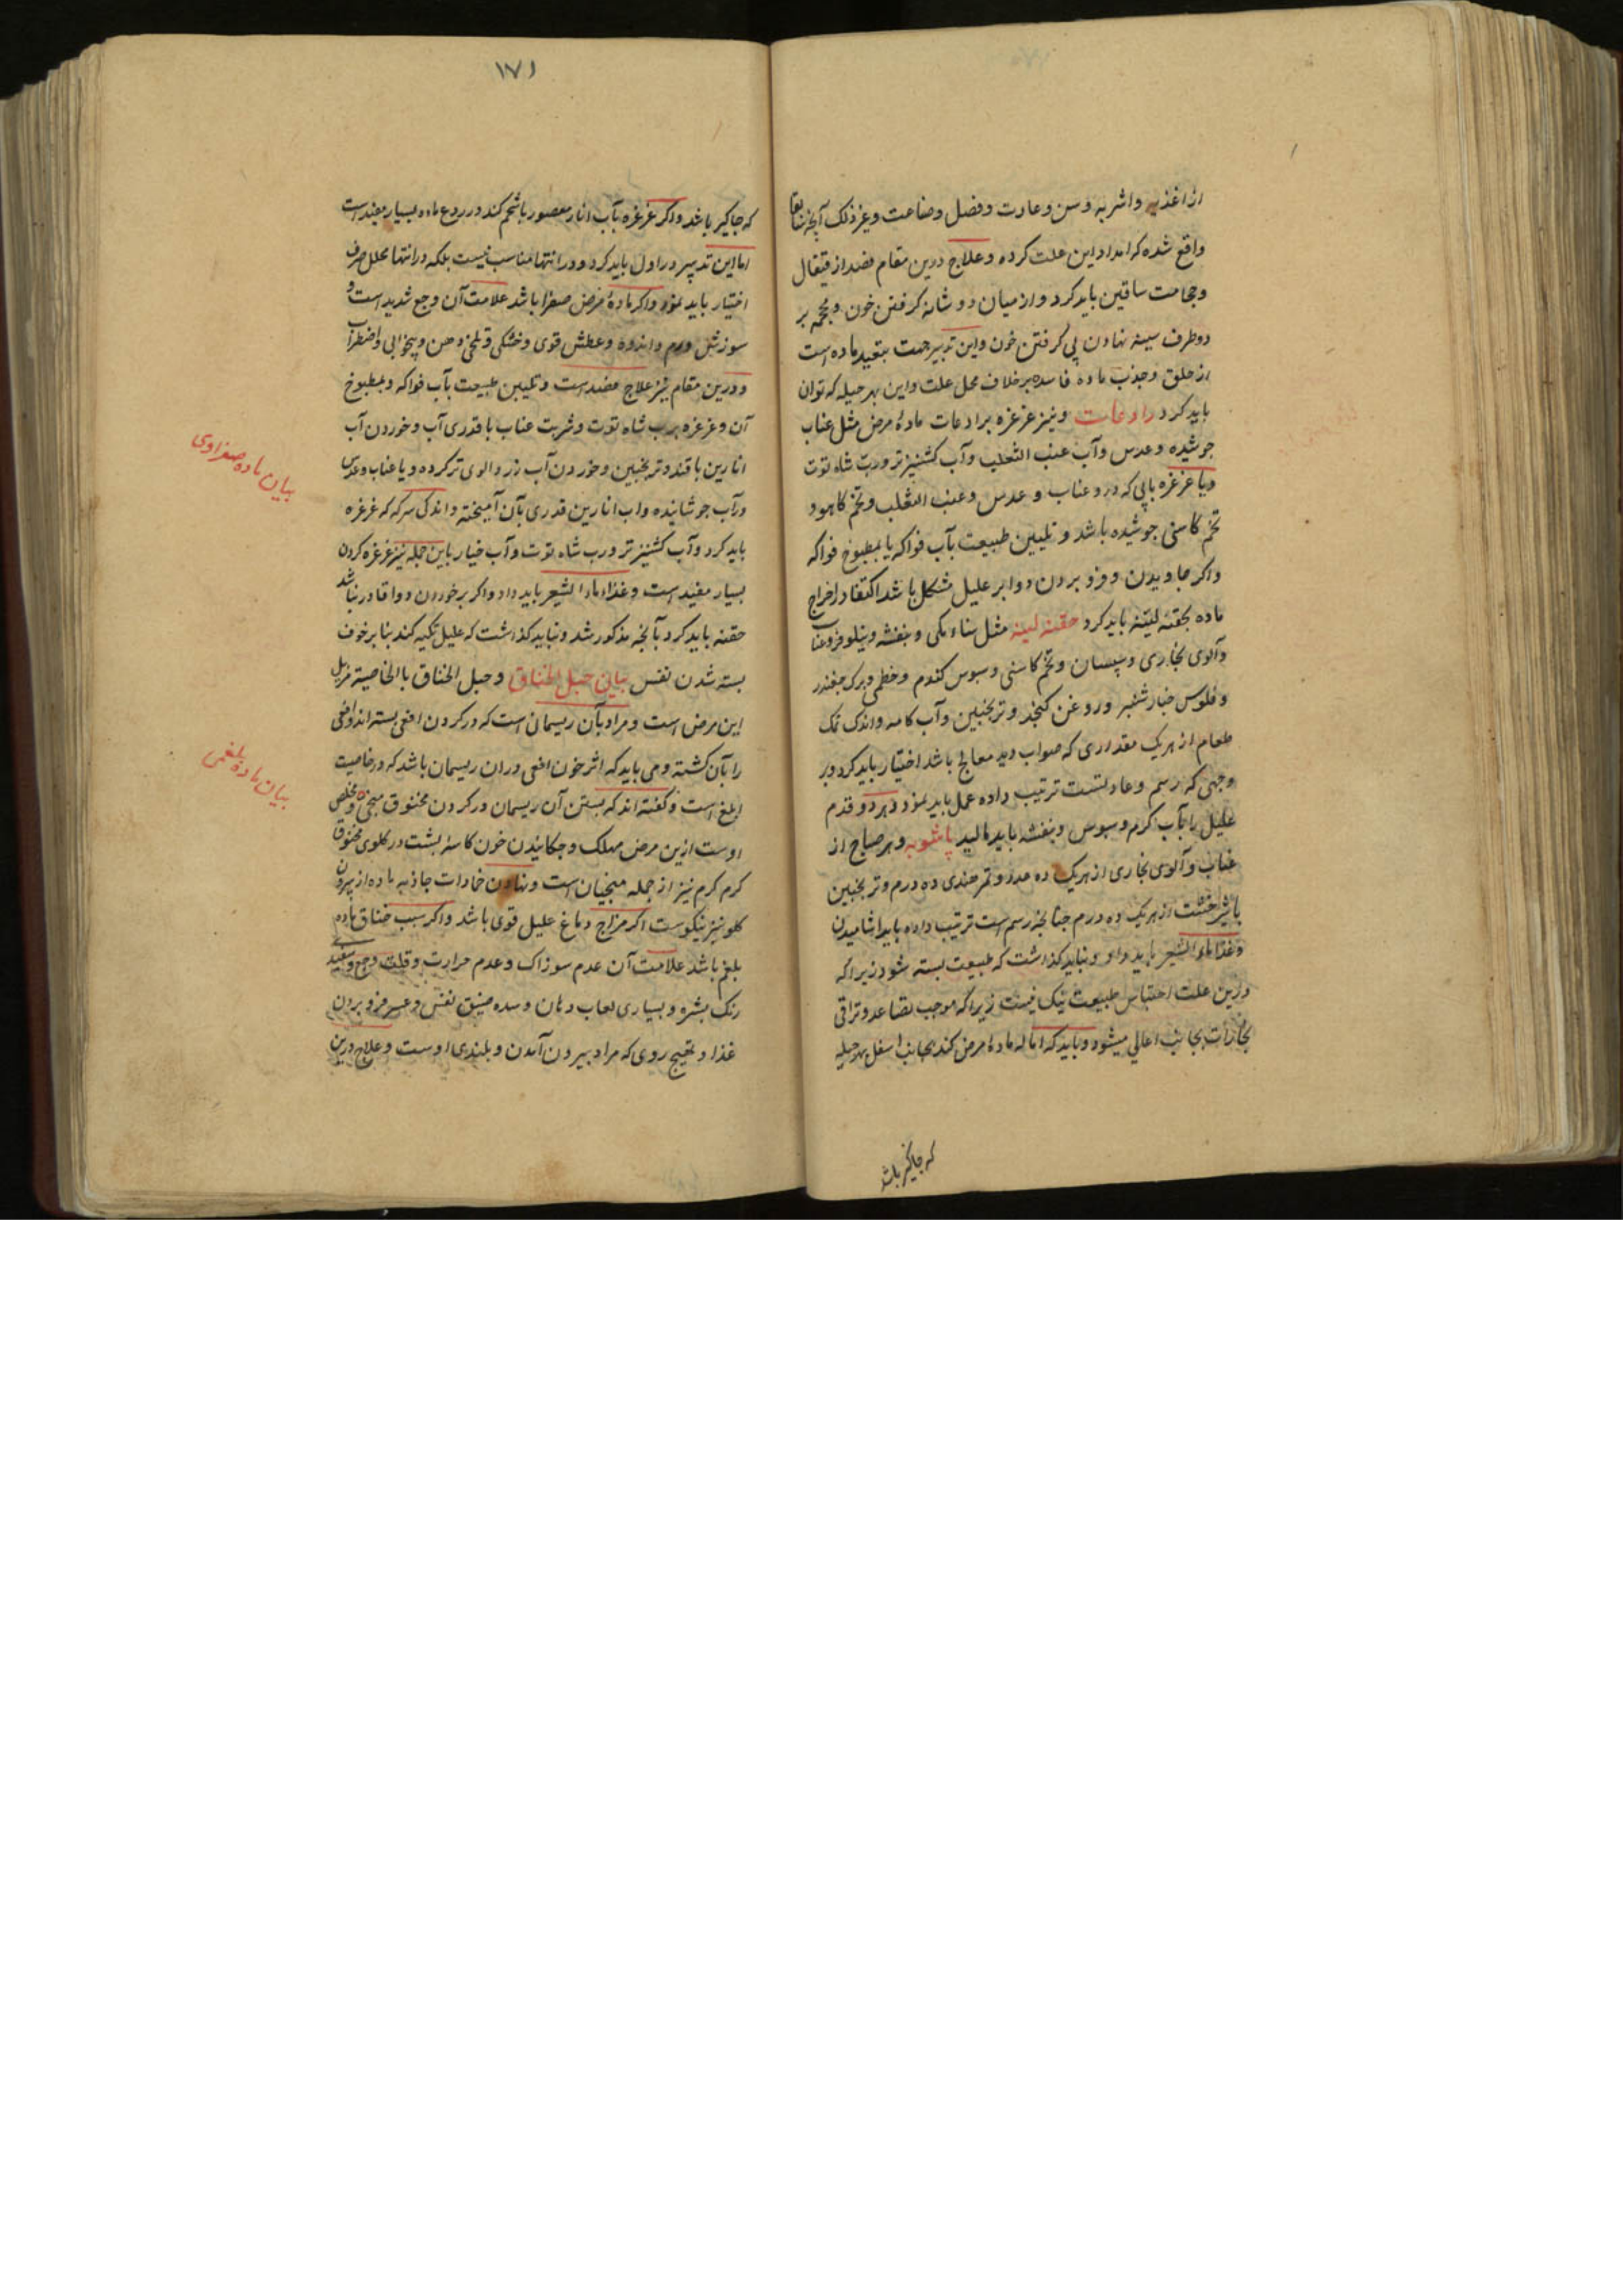 از اغذیه و اشربه و سن و عادت و فصل و صناعت و غیر ذلک آنچه
واقع شده که امداد این علت کرده و علاج درین مقام فصد از قیفال
و حجامت ساقین باید کرد و از میان دو شانه کرفتن خون و محجمه بر
دو طرف سینه نهادن پی کرفتن خون و این تدبیر جهت ماده است
از حلق و جذب ماده فاسده بر خلاف محل علت و این بهر حیله که توان
باید کرد رادعات و نیز غرغره برادعات ماده مرض مثل عناب
جوشیده و عدس و آب عنب الثعلب و آب کشنیز تر و رب شاه توت
و یا غرغره بابی که درو عناب و عدس و عنب الثعلب و تخم کاهو و
تخم کاسنی جوشیده باشد و تلیین طبیعت بآب فواکه یا بمطبوخ فواکه
و اکر جاویدن و فرو بردن دوا بر علیل مشکل باشد اکتفا در اخراج
ماده بحقنه لینه باید کرد حقنه لینه مثل سناء مکی و بنفشه و نیلوفر و عناب
و آلوی بخاری و سپستان و تخم کاسنی و سبوس کندم و خطمی و برک چغندر
و فلوس خیارشنبر و روغن کنجد و ترنجبین و آب کامه و اندک نمک
طعام از هر یک مقداری که صواب دید معالج باشد اختیار باید کرد و بر
وجهی که رسم و عادتست ترتیب داده عمل باید نمود و هر دو قدم
علیل را بآب کرم و سبوس و بنفشه باید مالید پاشویه و هر صباح از
عناب و آلوی بخاری از هر یک ده عدد و تمر هندی ده درم و ترنجبین
یا شیرخشت از هر یک ده درم چنانچه رسم است ترتیب داده باید آشامیدن
و غذا ماء الشعیر باید داد و نباید کذاشت که طبیعت بسته شود زیرا که
درین علت احتباس طبیعت نیک نیست زیرا که موجب تصاعد و تراقی
بخارات بجانب اعالی میشود و باید که اماله ماده مرض کند بجانب اسفل بهر حیله
که جاکیر باشد
۱۷۱
که جاکیر باشد و اکر غرغره بآب انار معصور با شحم کند در ردع ماده بسیار مفید است
اما این تدبیر در اول باید کرد و در انتها مناسب نیست بلکه در انتها محلل صرف
اختیار باید نمود و اکر ماده مرض صفرا باشد علامت آن وجع شدید است و
سوزش ورم و اندوه و عطش قوی و خشکی و تلخی دهن و بیخوابی و اضطراب
و درین مقام نیز علاج فصد است و تلیین طبیعت بآب فواکه و بمطبوخ
آن و غرغره برب شاه توت و شربت عناب با قدری آب و خوردن آب
انارین با قند و ترنجبین و خوردن آب زرد الوی تر کرده و یا عناب و عدس
در آب جوشانیده و اب انارین قدری بآن آمیخته و اندکی سرکه که غرغره
باید کرد و آب کشنیز تر و رب شاه توت و آب خیار باین جمله نیز غرغره کردن
بسیار مفید است و غذا ماء الشعیر باید داد و اکر بر خوردن دوا قادر نباشد
حقنه باید کرد بآنچه مذکور شد و نباید کذاشت که علیل تکیه کند بنا بر خوف
بسته شدن نفس بیان حبل الخناق و حبل الخناق بالخاصیة مزیل
این مرض است و مراد بآن ریسمانی است که در کردن افعی بسته اند و افعی
را بآن کشته و می باید که اثر خون افعی در آن ریسمان باشد که در خاصیت
ابلغ است و کفته اند که بستن آن ریسمان در کردن مخنوق منجی و مخلص
اوست ازین مرض مهلک و چکانیدن خون کاسه پشت در کلوی مخنوق
کرم کرم نیز از جمله منجیان است و نهادن ضمادات جاذبه ماده از بیرون
کلو نیز نیکوست اکر مزاج دماغ علیل قوی باشد و اکر سبب خناق ماده
بلغم باشد علامت آن عدم سوزاک و عدم حرارت و قلت وجع و سفیدی
رنک بشره و بسیاری لعاب دهان و سده ضیق نفس و عسر فرو بردن
غذا و تهیج روی که مراد بیرون آمدن و بلندی اوست و علاج درین
بیان ماده صفراوی
بیان ماده بلغمی